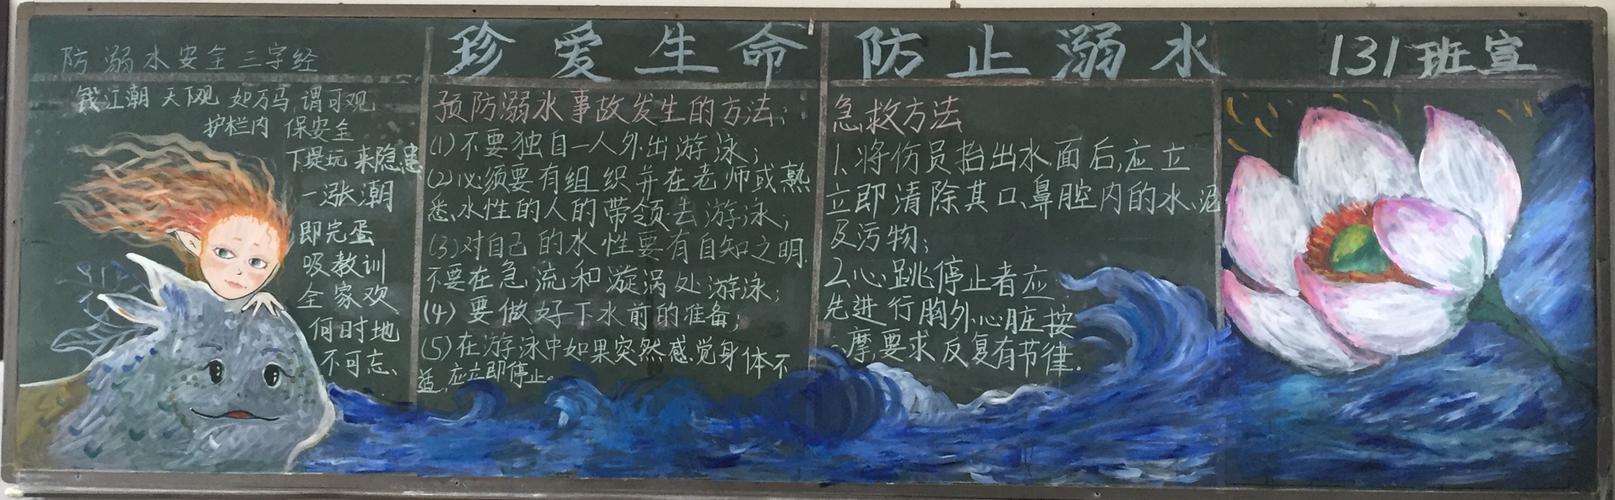 珍爱生命 防止溺水 131班宣
防溺水安全三字经
钱江潮 天下观 如万马 谓可观
护栏内 保安全
下堤玩 来隐患
一涨潮
即完蛋
吸教训
全家欢
何时地
不可忘、
预防溺水事故发生的方法:
(1)不要独自一人外出游泳;
(2)必须要有组织并在老师或熟
悉水性的人的带领去游泳;
(3)对自己的水性要有自知之明
不要在急流和漩涡处游泳;
(4)要做好下水前的准备;
(5)在游泳中如果突然感觉身体不
适,应立即停止。
急救方法
1.将伤员抬出水面后,应立
立即清除其口、鼻腔内的水、泥
及污物;
2.心跳停止者应
先进行胸外心脏按
摩,要求反复有节律.